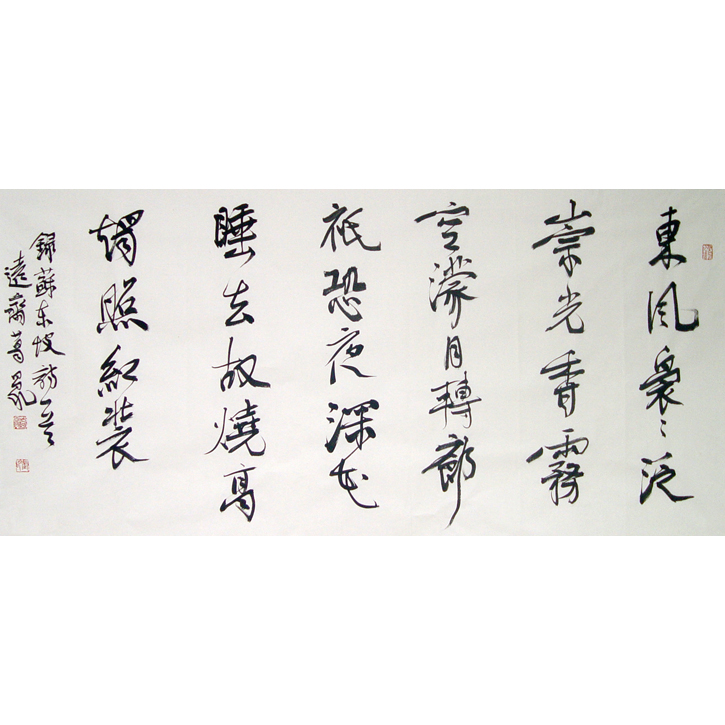 東風裊々泛
崇光香霧
空濛月轉廊
祇恐夜深花
睡去故燒高
燭照紅裝
錄蘇东坡詩一首